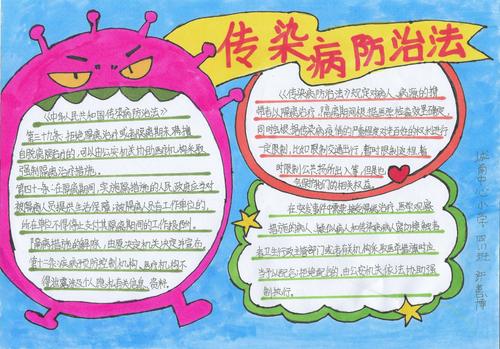 传染病防治法
《中华人民共和国传染病防治法》
第三十九条：拒绝隔离治疗或者隔离期未满擅
自脱离隔离治疗的，可以由公安机关协助医疗机构采取
强制隔离治疗措施。
第四十一条：在隔离期间，实施隔离措施的人民政府应当对
被隔离人员提供生活保障；被隔离人员有工作单位的，
所在单位不得停止支付其隔离期间的工作报酬。
隔离措施的解除，由原决定机关决定并宣布。
第十二条：疾病预防控制机构、医疗机构不
得泄露涉及个人隐私有关信息、资料。
《传染病防治法》规定对病人、病源的携
带者以隔离治疗，隔离期间根据医学检查结果确定，
同时也根据传染病疫情的严重程度对若干
一定限制，比如限制交通出行，暂时限制
时限制公共场所出入等，但是也
会保护他们的相关权益。
在突发事件中需要接受隔离治疗、医学观察
措施的病人、疑似病人和传染病病人密切接触者
在卫生行政主管部门或者有关机构采取医学措施时应
当予以配合；拒绝配合的，由公安机关依法协助强
制执行。
小学 四 班